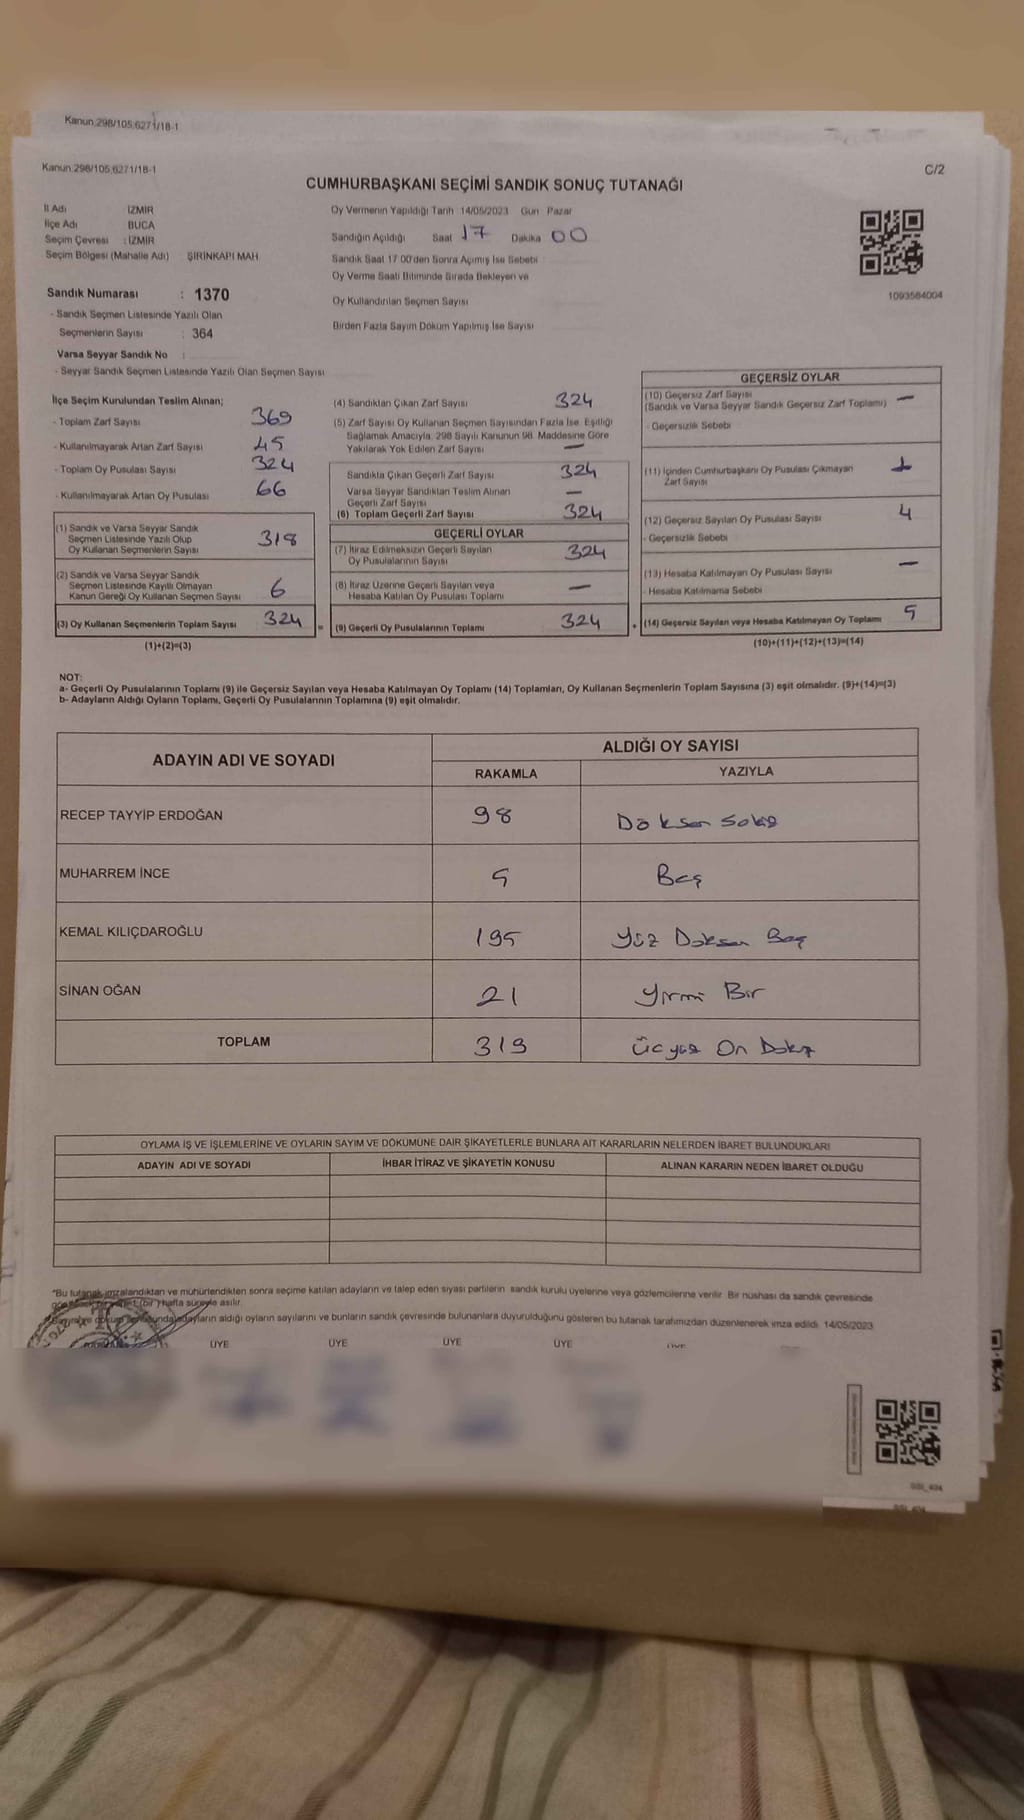 Kanun:298/105,6271/18-1
Kanun:298/105,6271/18-1
C/2
CUMHURBAŞKANI SEÇİMİ SANDIK SONUÇ TUTANAĞI
İl Adı İZMİR
İlçe Adı BUCA
Seçim Çevresi : İZMİR
Seçim Bölgesi (Mahalle Adı) ŞİRİNKAPI MAH
Oy Vermenin Yapıldığı Tarih 14/05/2023 Gün Pazar
Sandığın Açıldığı Saat 17 Dakika 00
Sandık Saat 17:00'den Sonra Açımış İse Sebebi
Oy Verme Saati Bitiminde Sırada Bekleyen ve
Oy Kullandırılan Seçmen Sayısı
Birden Fazla Sayım Döküm Yapılmış İse Sayısı
1093584004
Sandık Numarası : 1370
- Sandık Seçmen Listesinde Yazılı Olan
Seçmenlerin Sayısı : 364
Varsa Seyyar Sandık No :
- Seyyar Sandık Seçmen Listesinde Yazılı Olan Seçmen Sayısı
İlçe Seçim Kurulundan Teslim Alınan;
- Toplam Zarf Sayısı 369
- Kullanılmayarak Artan Zarf Sayısı 45
- Toplam Oy Pusulası Sayısı 324
- Kullanılmayarak Artan Oy Pusulası 66
(1) Sandık ve Varsa Seyyar Sandık
Seçmen Listesinde Yazılı Olup
Oy Kullanan Seçmenlerin Sayısı 318
(2) Sandık ve Varsa Seyyar Sandık
Seçmen Listesinde Kayıtlı Olmayan
Kanun Gereği Oy Kullanan Seçmen Sayısı 6
(3) Oy Kullanan Seçmenlerin Toplam Sayısı 324
(1)+(2)=(3)
=
(4) Sandıktan Çıkan Zarf Sayısı 324
(5) Zarf Sayısı Oy Kullanan Seçmen Sayısından Fazla İse, Eşitliği
Sağlamak Amacıyla, 298 Sayılı Kanunun 98. Maddesine Göre
Yakılarak Yok Edilen Zarf Sayısı —
Sandıkta Çıkan Geçerli Zarf Sayısı 324
Varsa Seyyar Sandıktan Teslim Alınan
Geçerli Zarf Sayısı —
(6) Toplam Geçerli Zarf Sayısı 324
GEÇERLİ OYLAR
(7) İtiraz Edilmeksizin Geçerli Sayılan
Oy Pusulalarının Sayısı 324
(8) İtiraz Üzerine Geçerli Sayılan veya
Hesaba Katılan Oy Pusulası Toplamı —
(9) Geçerli Oy Pusulalarının Toplamı 324
+
GEÇERSİZ OYLAR
(10) Geçersiz Zarf Sayısı —
(Sandık ve Varsa Seyyar Sandık Geçersiz Zarf Toplamı)
- Geçersizlik Sebebi
(11) İçinden Cumhurbaşkanı Oy Pusulası Çıkmayan 1
Zarf Sayısı
(12) Geçersiz Sayılan Oy Pusulası Sayısı 4
- Geçersizlik Sebebi
(13) Hesaba Katılmayan Oy Pusulası Sayısı —
- Hesaba Katılmama Sebebi
(14) Geçersiz Sayılan veya Hesaba Katılmayan Oy Toplamı 5
(10)+(11)+(12)+(13)=(14)
NOT:
a- Geçerli Oy Pusulalarının Toplamı (9) ile Geçersiz Sayılan veya Hesaba Katılmayan Oy Toplamı (14) Toplamları, Oy Kullanan Seçmenlerin Toplam Sayısına (3) eşit olmalıdır. (9)+(14)=(3)
b- Adayların Aldığı Oyların Toplamı, Geçerli Oy Pusulalarının Toplamına (9) eşit olmalıdır.
ADAYIN ADI VE SOYADI
ALDIĞI OY SAYISI
RAKAMLA YAZIYLA
RECEP TAYYİP ERDOĞAN 98 Doksan Sekiz
MUHARREM İNCE 5 Beş
KEMAL KILIÇDAROĞLU 195 Yüz Doksan Beş
SİNAN OĞAN 21 Yirmi Bir
TOPLAM 319 Üçyüz On Dokuz
OYLAMA İŞ VE İŞLEMLERİNE VE OYLARIN SAYIM VE DÖKÜMÜNE DAİR ŞİKAYETLERLE BUNLARA AİT KARARLARIN NELERDEN İBARET BULUNDUKLARI
ADAYIN ADI VE SOYADI İHBAR İTİRAZ VE ŞİKAYETİN KONUSU ALINAN KARARIN NEDEN İBARET OLDUĞU
*Bu tutanak imzalandıktan ve mühürlendikten sonra seçime katılan adayların ve talep eden siyasi partilerin sandık kurulu üyelerine veya gözlemcilerine verilir. Bir nüshası da sandık çevresinde
(bir) hafta süreyle asılır.
adayların aldığı oyların sayılarını ve bunların sandık çevresinde bulunanlara duyurulduğunu gösteren bu tutanak tarafımızdan düzenlenerek imza edildi. 14/05/2023
ÜYE ÜYE ÜYE ÜYE